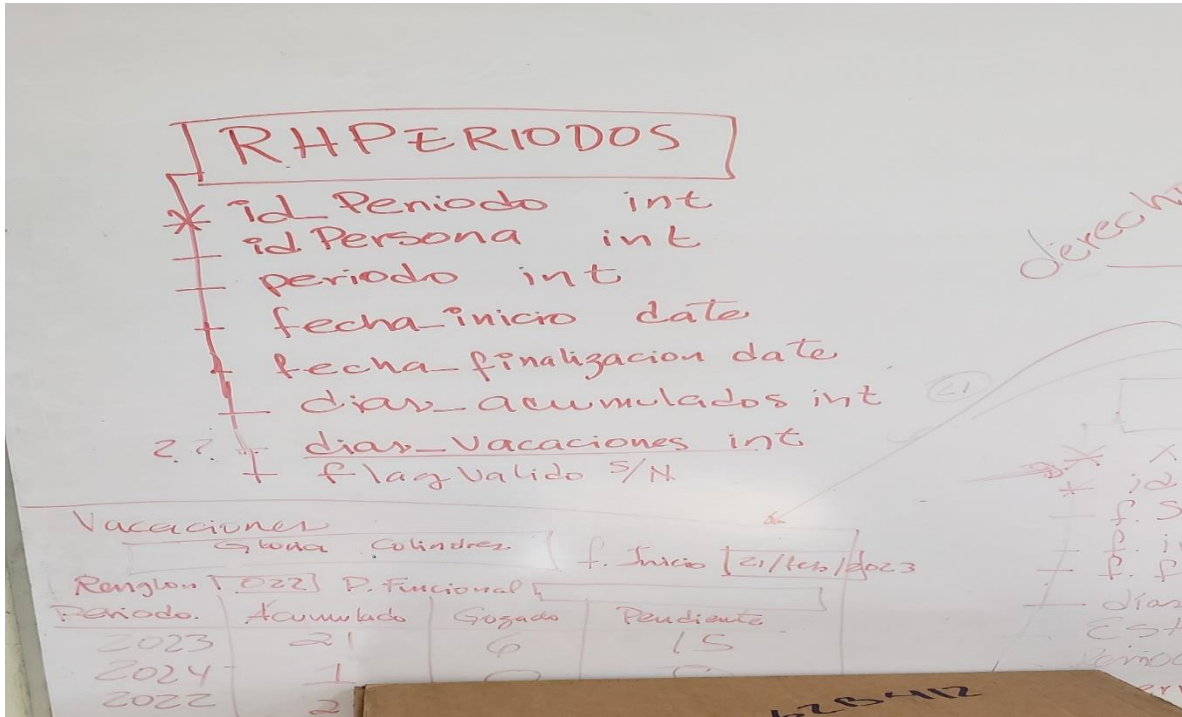 RHPERIODOS
* id_Periodo int
id Persona int
periodo int
fecha_inicio date
fecha_finalizacion date
dias_acumulados int
?.? dias_Vacaciones int
flag Valido S/N
derech
Vacaciones
Gloria Colindres f. Inicio 21/feb/2023
Renglon 022 P. Funcional
Periodo. Acumulado Gozado Pendiente
2023 21 6 15
2024 1
2022 2
id
f. S
f. i
f. f
dias
Est